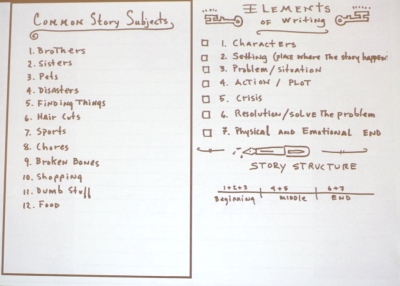 Common Story Subjects
1. Brothers
2. Sisters
3. Pets
4. Disasters
5. Finding Things
6. Hair Cuts
7. Sports
8. Chores
9. Broken Bones
10. Shopping
11. Dumb Stuff
12. Food
Elements
of Writing
1. Characters
2. Setting (place where the story happens
3. Problem/situation
4. Action / Plot
5. Crisis
6. Resolution/solve the problem
7. Physical and Emotional End
Story Structure
1+2+3 4+5 6+7
Beginning middle End